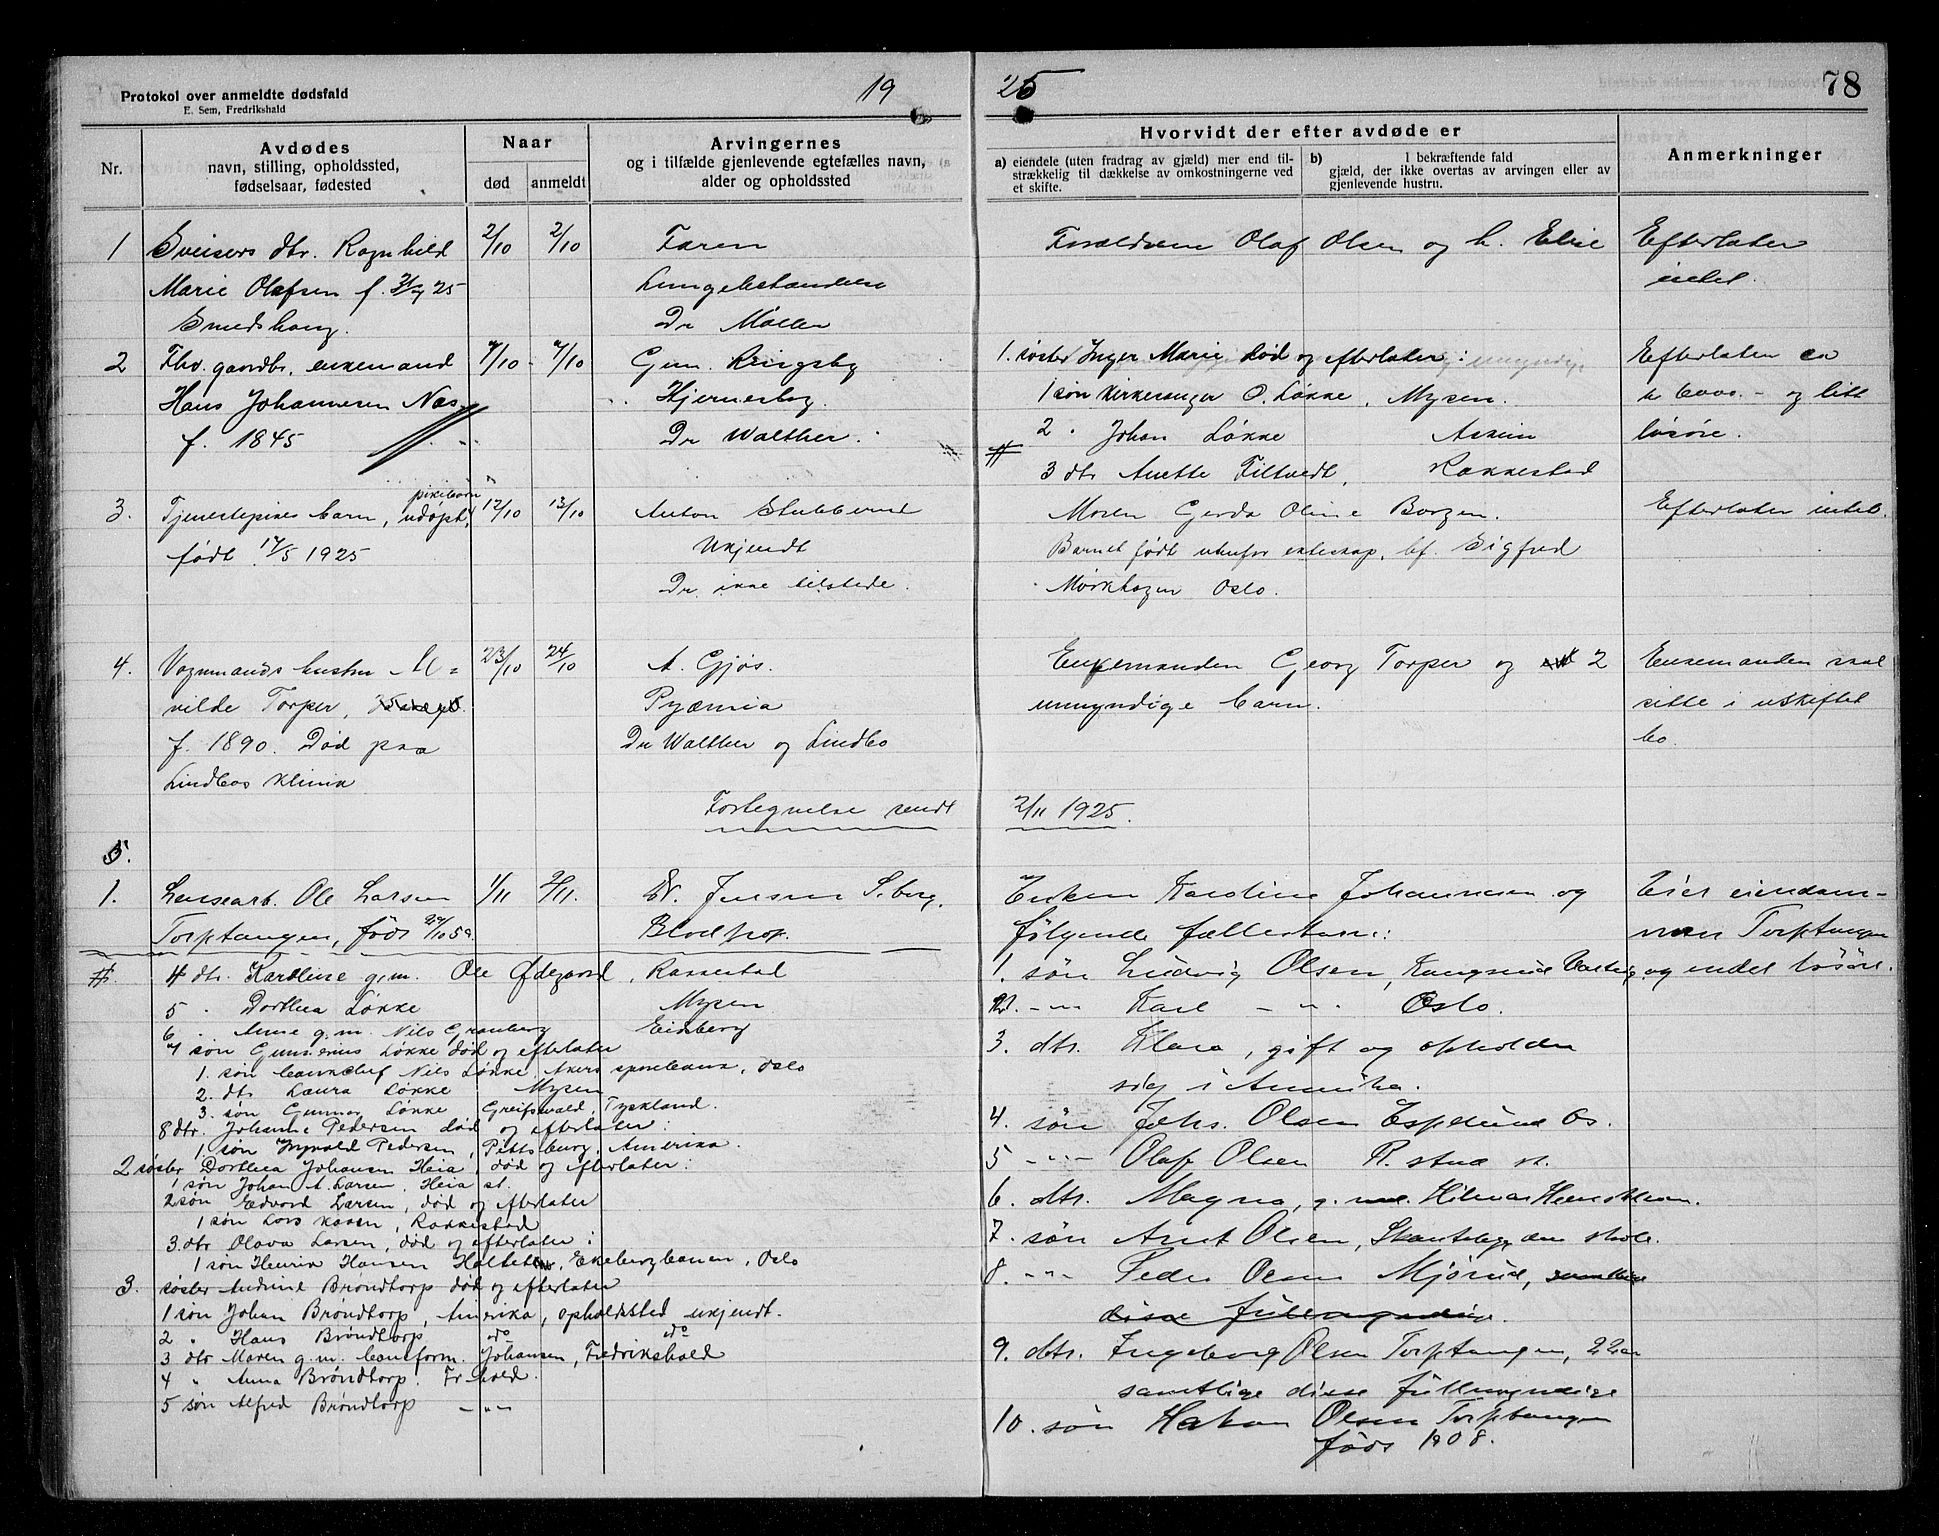 Protokol over anmeldte dødsfald
E. Sem, Fredrikshald
19 25
78
Nr.
Avdødes
navn, stilling, opholdssted,
fødselsaar, fødested
Naar
død
anmeldt
Arvingernes
og i tilfælde gjenlevende egtefælles navn,
alder og opholdssted
Hvorvidt der efter avdøde er
a) eiendele (uten fradrag av gjæld) mer end til-
strækkelig til dækkelse av omkostningerne ved
et skifte.
b) I bekræftende fald
gjæld, der ikke overtas av arvingen eller av
gjenlevende hustru.
Anmerkninger
1 Sveisers dtr. Ragnhild 2/10 2/10 Faren
Marie Olafsen f. 25 Lungebetændelse
Smedshaug. Dr Møller
Forældrene Olaf Olsen og h. Elise
Efterlater
intet.
2 Fhv. gaardbr. enkemand 7/10 7/10 Gun. Ringsby
Hans Johannesen Næs Hjerneslag.
f. 1845 Dr Walther.
1. søster Inger Marie død og efterlater:
1 søn Kirkesanger O. Løkke, Mysen.
2 " Johan Løkke Askim
# 3 dtr Anette Filtvedt, Rakkestad
Efterlater ca
kr 6000.- og litt
løsøre.
3. Tjenestepikes barn, pikebarn udøpt, 12/10 13/10 Anton Stubberud
født 17/5 1925 Ukjendt
Dr. ikke tilstede.
Moren Gerda Oline Borgen.
Barnet født utenfor ekteskap, bf. Sigfred
Mørkhagen Oslo.
Efterlater intet.
4. Vognmands hustru M= 23/10 24/10 A. Gjøs.
vilde Torper, Pyæmia
f. 1890. Død paa Dr Walther og Lindbo
Lindbos klinik
Enkemanden Georg Torper og 2
umyndige barn.
Enkemanden skal
sitte i uskiftet
bo.
Fortegnelse sendt 2/11 1925.
5.
1. Lensearb. Ole Larsen 1/11 2/11. Dr. Jensen S.borg.
Torptangen, født 29/10 59. Blodprop.
Enken Karoline Johannesen og
følgende fællesbarn:
Eier eiendom-
men Torptangen
og endel løsøre.
1. søn Ludvig Olsen, Kongsrud Varteig
2. -"- Karl -"- Oslo.
3. dtr. Klara, gift og opholder
sig i Amerika.
4. søn Johs. Olsen Espelund Os.
5 -"- Olaf Olsen R.stad st.
6. dtr. Magna, g. m. Hilmar Henriksen.
7. søn Arnt Olsen, skole.
8. -"- Peder Olsen Mjørud, samtlige
disse fuldmyndige.
9. dtr. Ingeborg Olsen Torptangen, 22 aar
samtlige disse fuldmyndige
10. søn Hakon Olsen Torptangen
født 1908.
#. 4 dtr. Karoline g.m. Ole Ødegaard, Rakkestad
5 " Dorthea Løkke Mysen
6 " Anne g.m. Nils Granberg Eidsberg
7 søn Gunnerius Løkke død og efterlater
1. søn bankchef Nils Løkke, Akers sparebank, Oslo
2. dtr Laura Løkke Mysen
3. søn Gunnar Løkke Greifswald, Tyskland.
8 dtr. Johanne Pedersen død og efterlater:
1. søn Ingvald Pedersen, Pittsburg, Amerika.
2 søster Dorthea Johansen Heia, død og efterlater:
1 søn Johan A. Larsen, Heia st.
2 søn Edvard Larsen, død og efterlater
1 søn Lars Larsen, Rakkestad
3. dtr Olava Larsen, død og efterlater:
1 søn Henrik Hansen Holtet, Ekebergbanen, Oslo
3. søster Andrine Brøndtorp død og efterlater
1 søn Johan Brøndtorp, Amerika, opholdssted ukjendt.
2 " Hans Brøndtorp do do
3 dtr Maren g.m. baneform. Johansen, Fredrikshald
4 " Anna Brøndtorp. Fr.hald.
5 søn Alfred Brøndtorp -"-